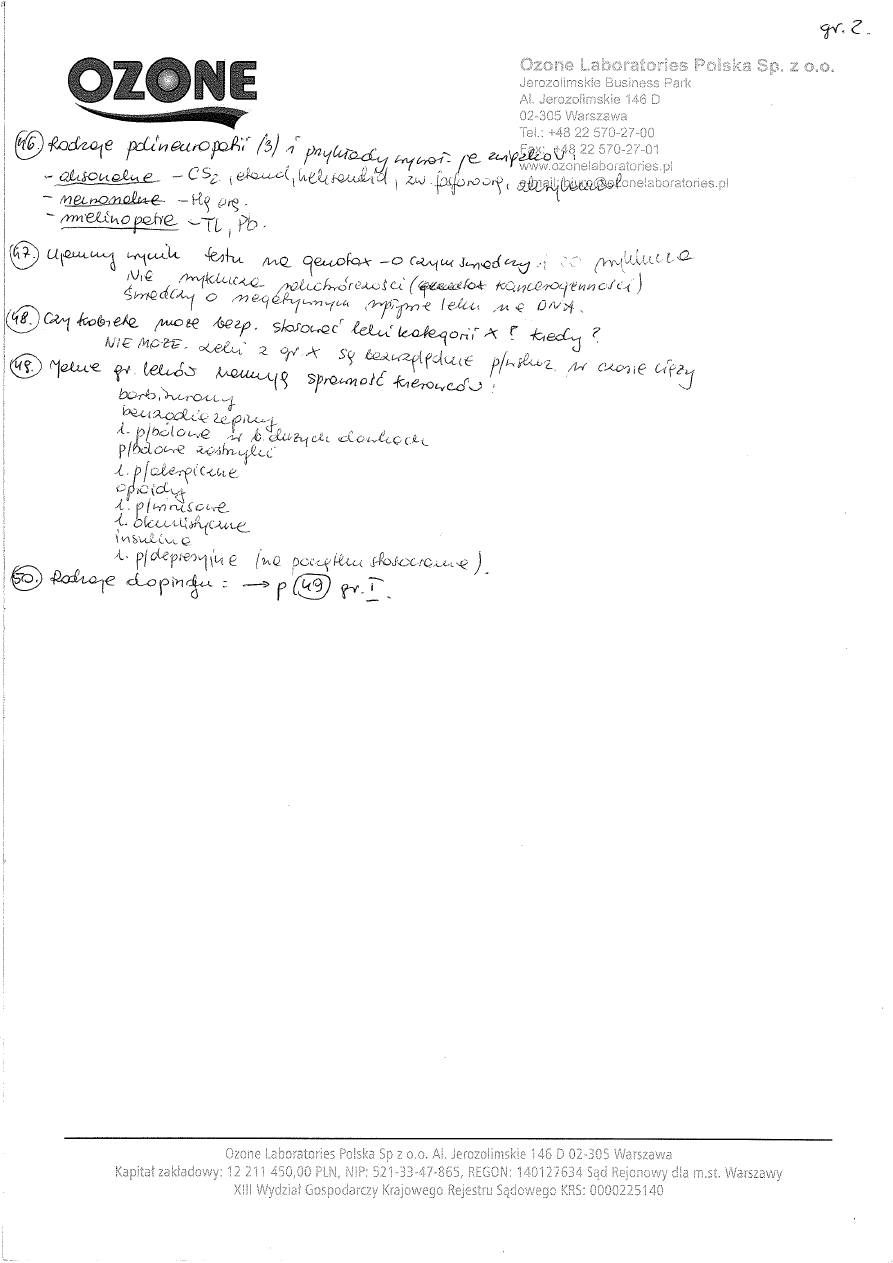 gr. 2.
OZONE
Ozone Laboratories Polska Sp. z o.o.
Jerozolimskie Business Park
Al. Jerozolimskie 146 D
02-305 Warszawa
Tel.: +48 22 570-27-00
Fax: +48 22 570-27-01
www.ozonelaboratories.pl
e-mail: biuro@ozonelaboratories.pl
46. Rodzaje polineuropatii (3) i przykłady wywoł. je związków:
- aksonalne - CS2, etanol, heksandiol, zw. fosforoorg,
- neuronalne - Hg org.
- mielinopatie - Tl, Pb.
47. Ujemny wynik testu na genotox - o czym świadczy i co wyklucza
NIE wyklucza (kancerogenności)
Świadczy o negatywnym wpływie leku na DNA.
48. Czy kobieta może bezp. stosować leki kategorii X? kiedy?
NIE MOŻE. Leki z gr X są bezwzględnie p/wskaz. w czasie ciąży
49. Jakie gr. leków hamują sprawność kierowców:
barbiturany
benzodiazepiny
l. p/bólowe w b. dużych dawkach
p/bólowe zastrzyki
l. p/alergiczne
opioidy
l. p/wirusowe
l. okulistyczne
insulina
l. p/depresyjne (na początku stosowania).
50. Rodzaje dopingu: → p 49 gr. I.
Ozone Laboratories Polska Sp z o.o. Al. Jerozolimskie 146 D 02-305 Warszawa
Kapitał zakładowy: 12 211 450,00 PLN, NIP: 521-33-47-865, REGON: 140127634 Sąd Rejonowy dla m.st. Warszawy
XIII Wydział Gospodarczy Krajowego Rejestru Sądowego KRS: 0000225140